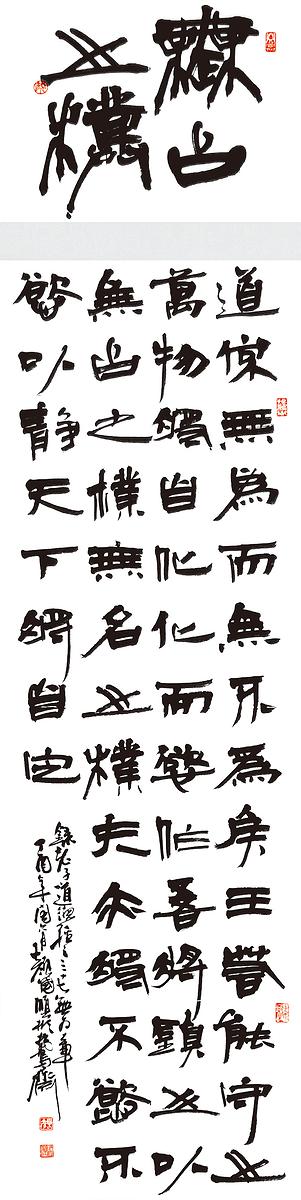 無名
之樸
道常無為而無不為侯王若能守之
萬物將自化化而欲作吾將鎮之以
無名之樸無名之樸夫亦將不欲不
欲以靜天下將自定
錄老子道德經三七無為章
丁酉年